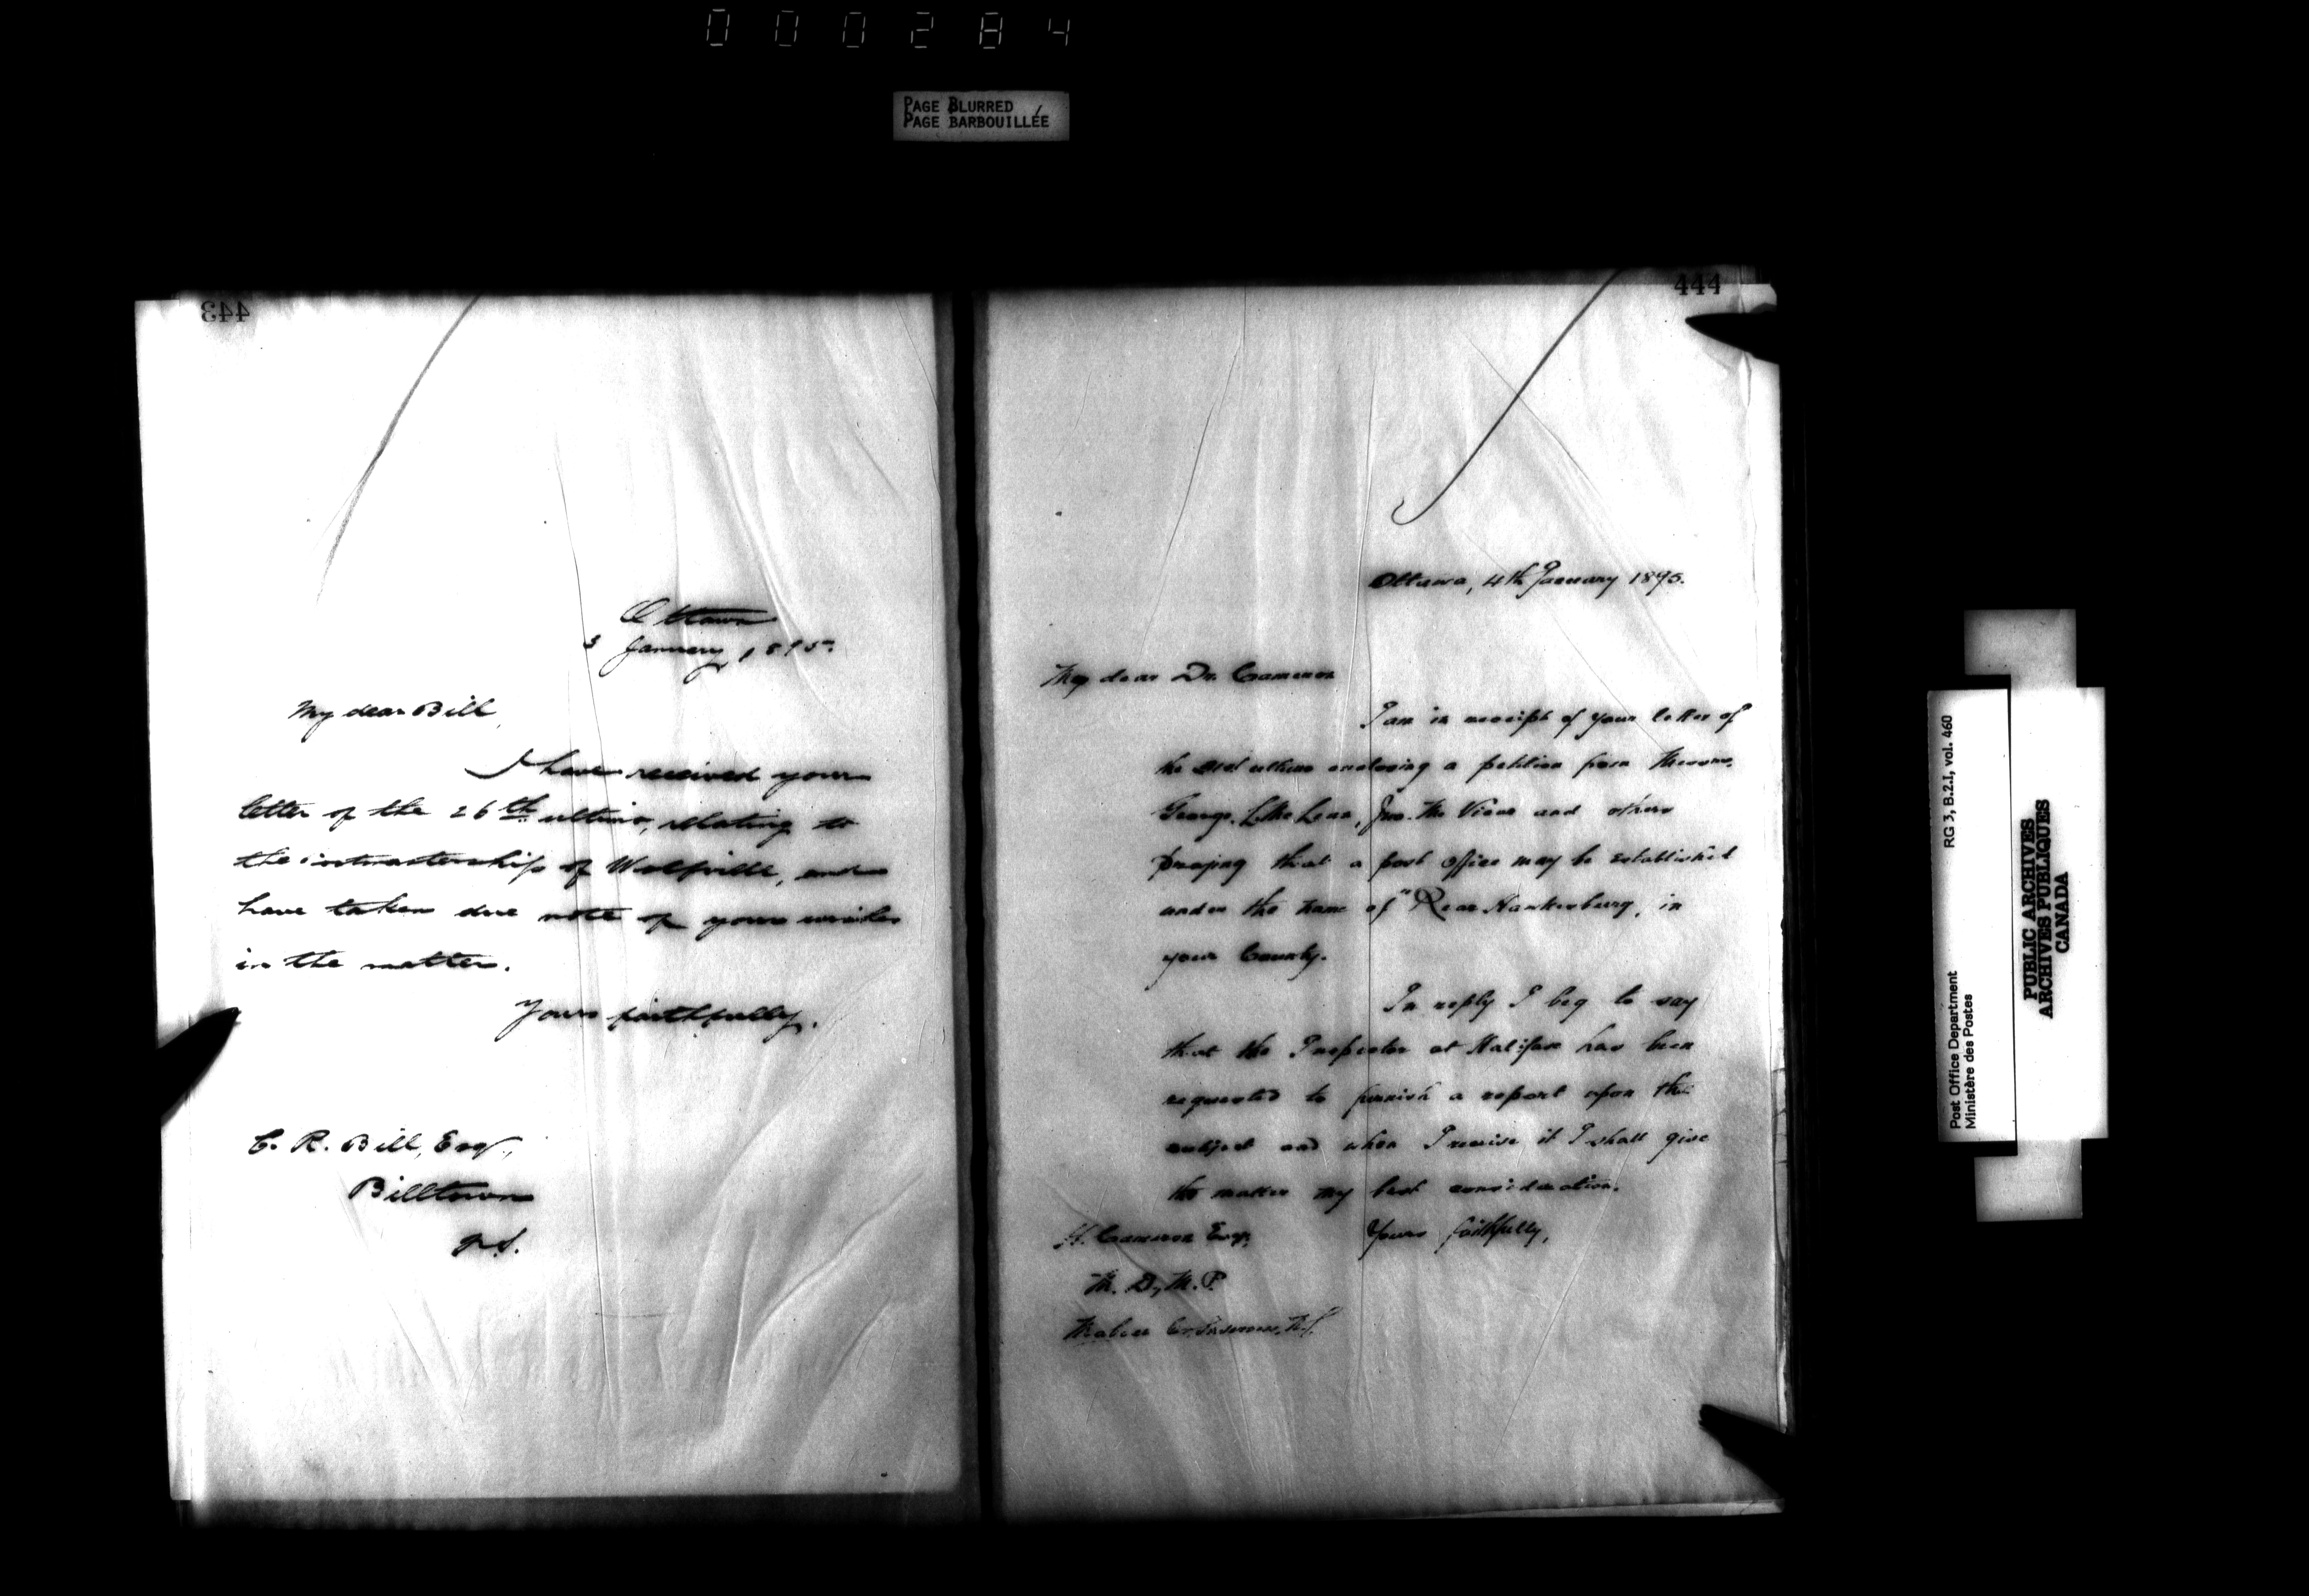 000284
PAGE BLURRED
PAGE BARBOUILLÉE
443
Ottawa
3 January, 1895.
My dear Bill,
I have received your
letter of the 26th ultimo, relating to
the postmastership of Wolfville, and
have taken due note of your wishes
in the matter.
Yours faithfully,
C. R. Bill, Esq.,
Billtown
N.S.
444
Ottawa, 4th January 1895.
My dear Dr. Cameron
I am in receipt of your letter of
the ultimo enclosing a petition from Messrs.
George and others
praying that a post office may be established
under the name of "Rear in
your County.
In reply I beg to say
that the Inspector at Halifax has been
requested to furnish a report upon the
subject and when I receive it I shall give
the matter my best consideration.
Yours faithfully,
H. Cameron Esq.
M. D., M. P.
Mabou N.S.
Post Office Department RG 3, B.2.I, vol. 460
Ministère des Postes
PUBLIC ARCHIVES
ARCHIVES PUBLIQUES
CANADA